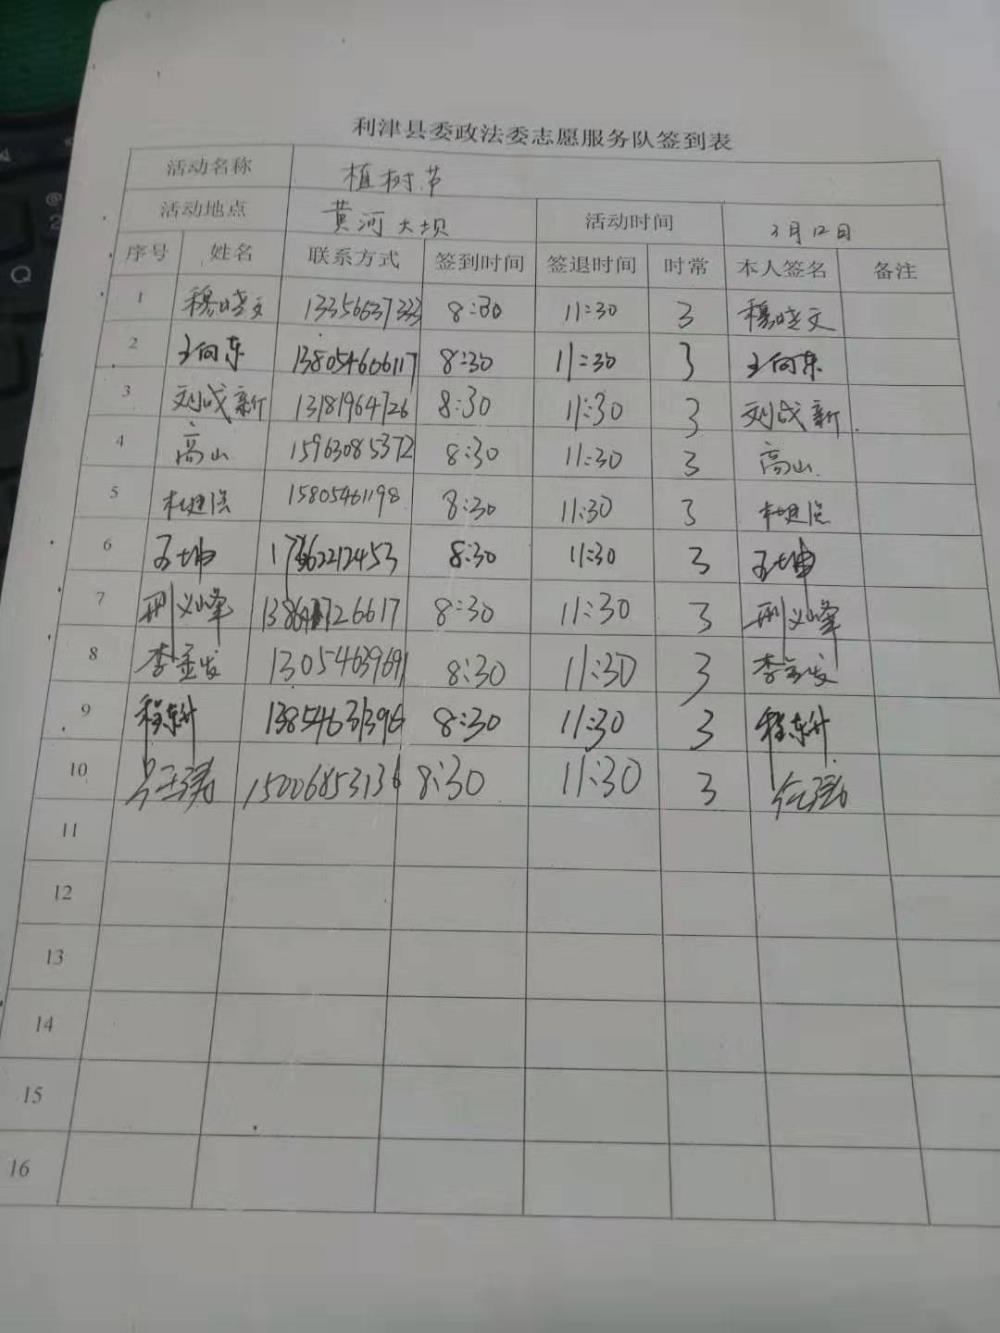 利津县委政法委志愿服务队签到表
活动名称 植树节
活动地点 黄河大坝 活动时间 3月12日
序号 姓名 联系方式 签到时间 签退时间 时常 本人签名 备注
1 穆晓文 13356637333 8:30 11:30 3 穆晓文
2 王向东 13805466117 8:30 11:30 3 王向东
3 刘成新 13181964726 8:30 11:30 3 刘成新
4 高山 15963085372 8:30 11:30 3 高山
5 15805461198 8:30 11:30 3
6 8:30 11:30 3
7 邢义峰 8:30 11:30 3 邢义峰
8 李金发 13054639691 8:30 11:30 3 李金发
9 程东升 13854631396 8:30 11:30 3 程东升
10 15006853136 8:30 11:30 3
11
12
13
14
15
16